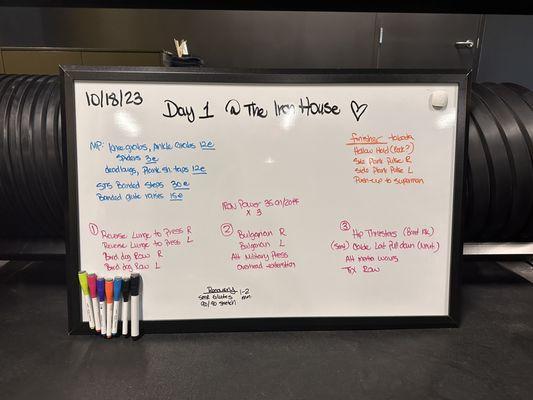 10/18/23
Day 1 @ The Iron House ♡
MP: knee circles, Ankle circles 12e
Spiders 3e
deadbugs, Plank sh. taps 12e
STS Banded Steps 30e
Banded glute raises 15e
finisher - tabata
Hollow Hold (Rock?)
Side Plank Pulse R
Side Plank Pulse L
Push-up to superman
Iron Power 35 on/20 off
x 3
① Reverse Lunge to Press R
Reverse Lunge to Press L
Bird dog Row R
Bird dog Row L
② Bulgarian R
Bulgarian L
Alt Military Press
overhead extension
③ Hip Thrusters
Cable Lat Pull down
Alt waves
TRX Row
Recovery 1-2
SMR Glutes min
90/90 stretch